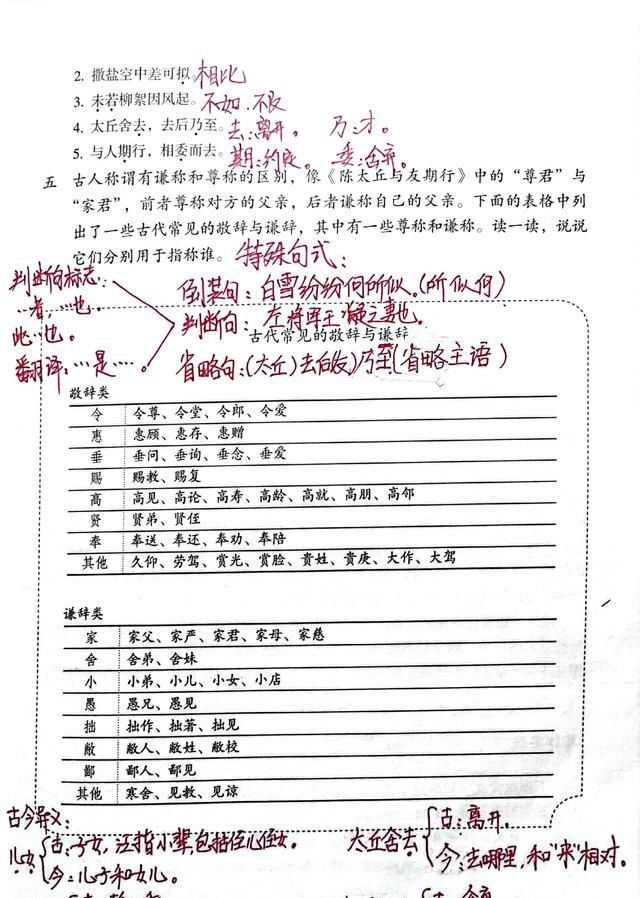 2. 撒盐空中差可拟。相比
3. 未若柳絮因风起。不如、不及
4. 太丘舍去，去后乃至。去：离开。 乃：才。
5. 与人期行，相委而去。期：约定。 委：舍弃。
五 古人称谓有谦称和尊称的区别，像《陈太丘与友期行》中的“尊君”与
“家君”，前者尊称对方的父亲，后者谦称自己的父亲。下面的表格中列
出了一些古代常见的敬辞与谦辞，其中有一些尊称和谦称。读一读，说说
它们分别用于指称谁。
特殊句式：
判断句标志：
…者，…也。
此…也。
翻译：…是…。
倒装句：白雪纷纷何所似。(所似何)
判断句：左将军王凝之妻也。
古代常见的敬辞与谦辞
省略句：(太丘)去后(友)乃至(省略主语)
敬辞类
令 令尊、令堂、令郎、令爱
惠 惠顾、惠存、惠赠
垂 垂问、垂询、垂念、垂爱
赐 赐教、赐复
高 高见、高论、高寿、高龄、高就、高朋、高邻
贤 贤弟、贤侄
奉 奉送、奉还、奉劝、奉陪
其他 久仰、劳驾、赏光、赏脸、贵姓、贵庚、大作、大驾
谦辞类
家 家父、家严、家君、家母、家慈
舍 舍弟、舍妹
小 小弟、小儿、小女、小店
愚 愚兄、愚见
拙 拙作、拙著、拙见
敝 敝人、敝姓、敝校
鄙 鄙人、鄙见
其他 寒舍、见教、见谅
古今异义：
儿女
古：子女，泛指小辈，包括侄儿侄女。
今：儿子和女儿。
太丘舍去
古：离开。
今：去哪里，和“来”相对。